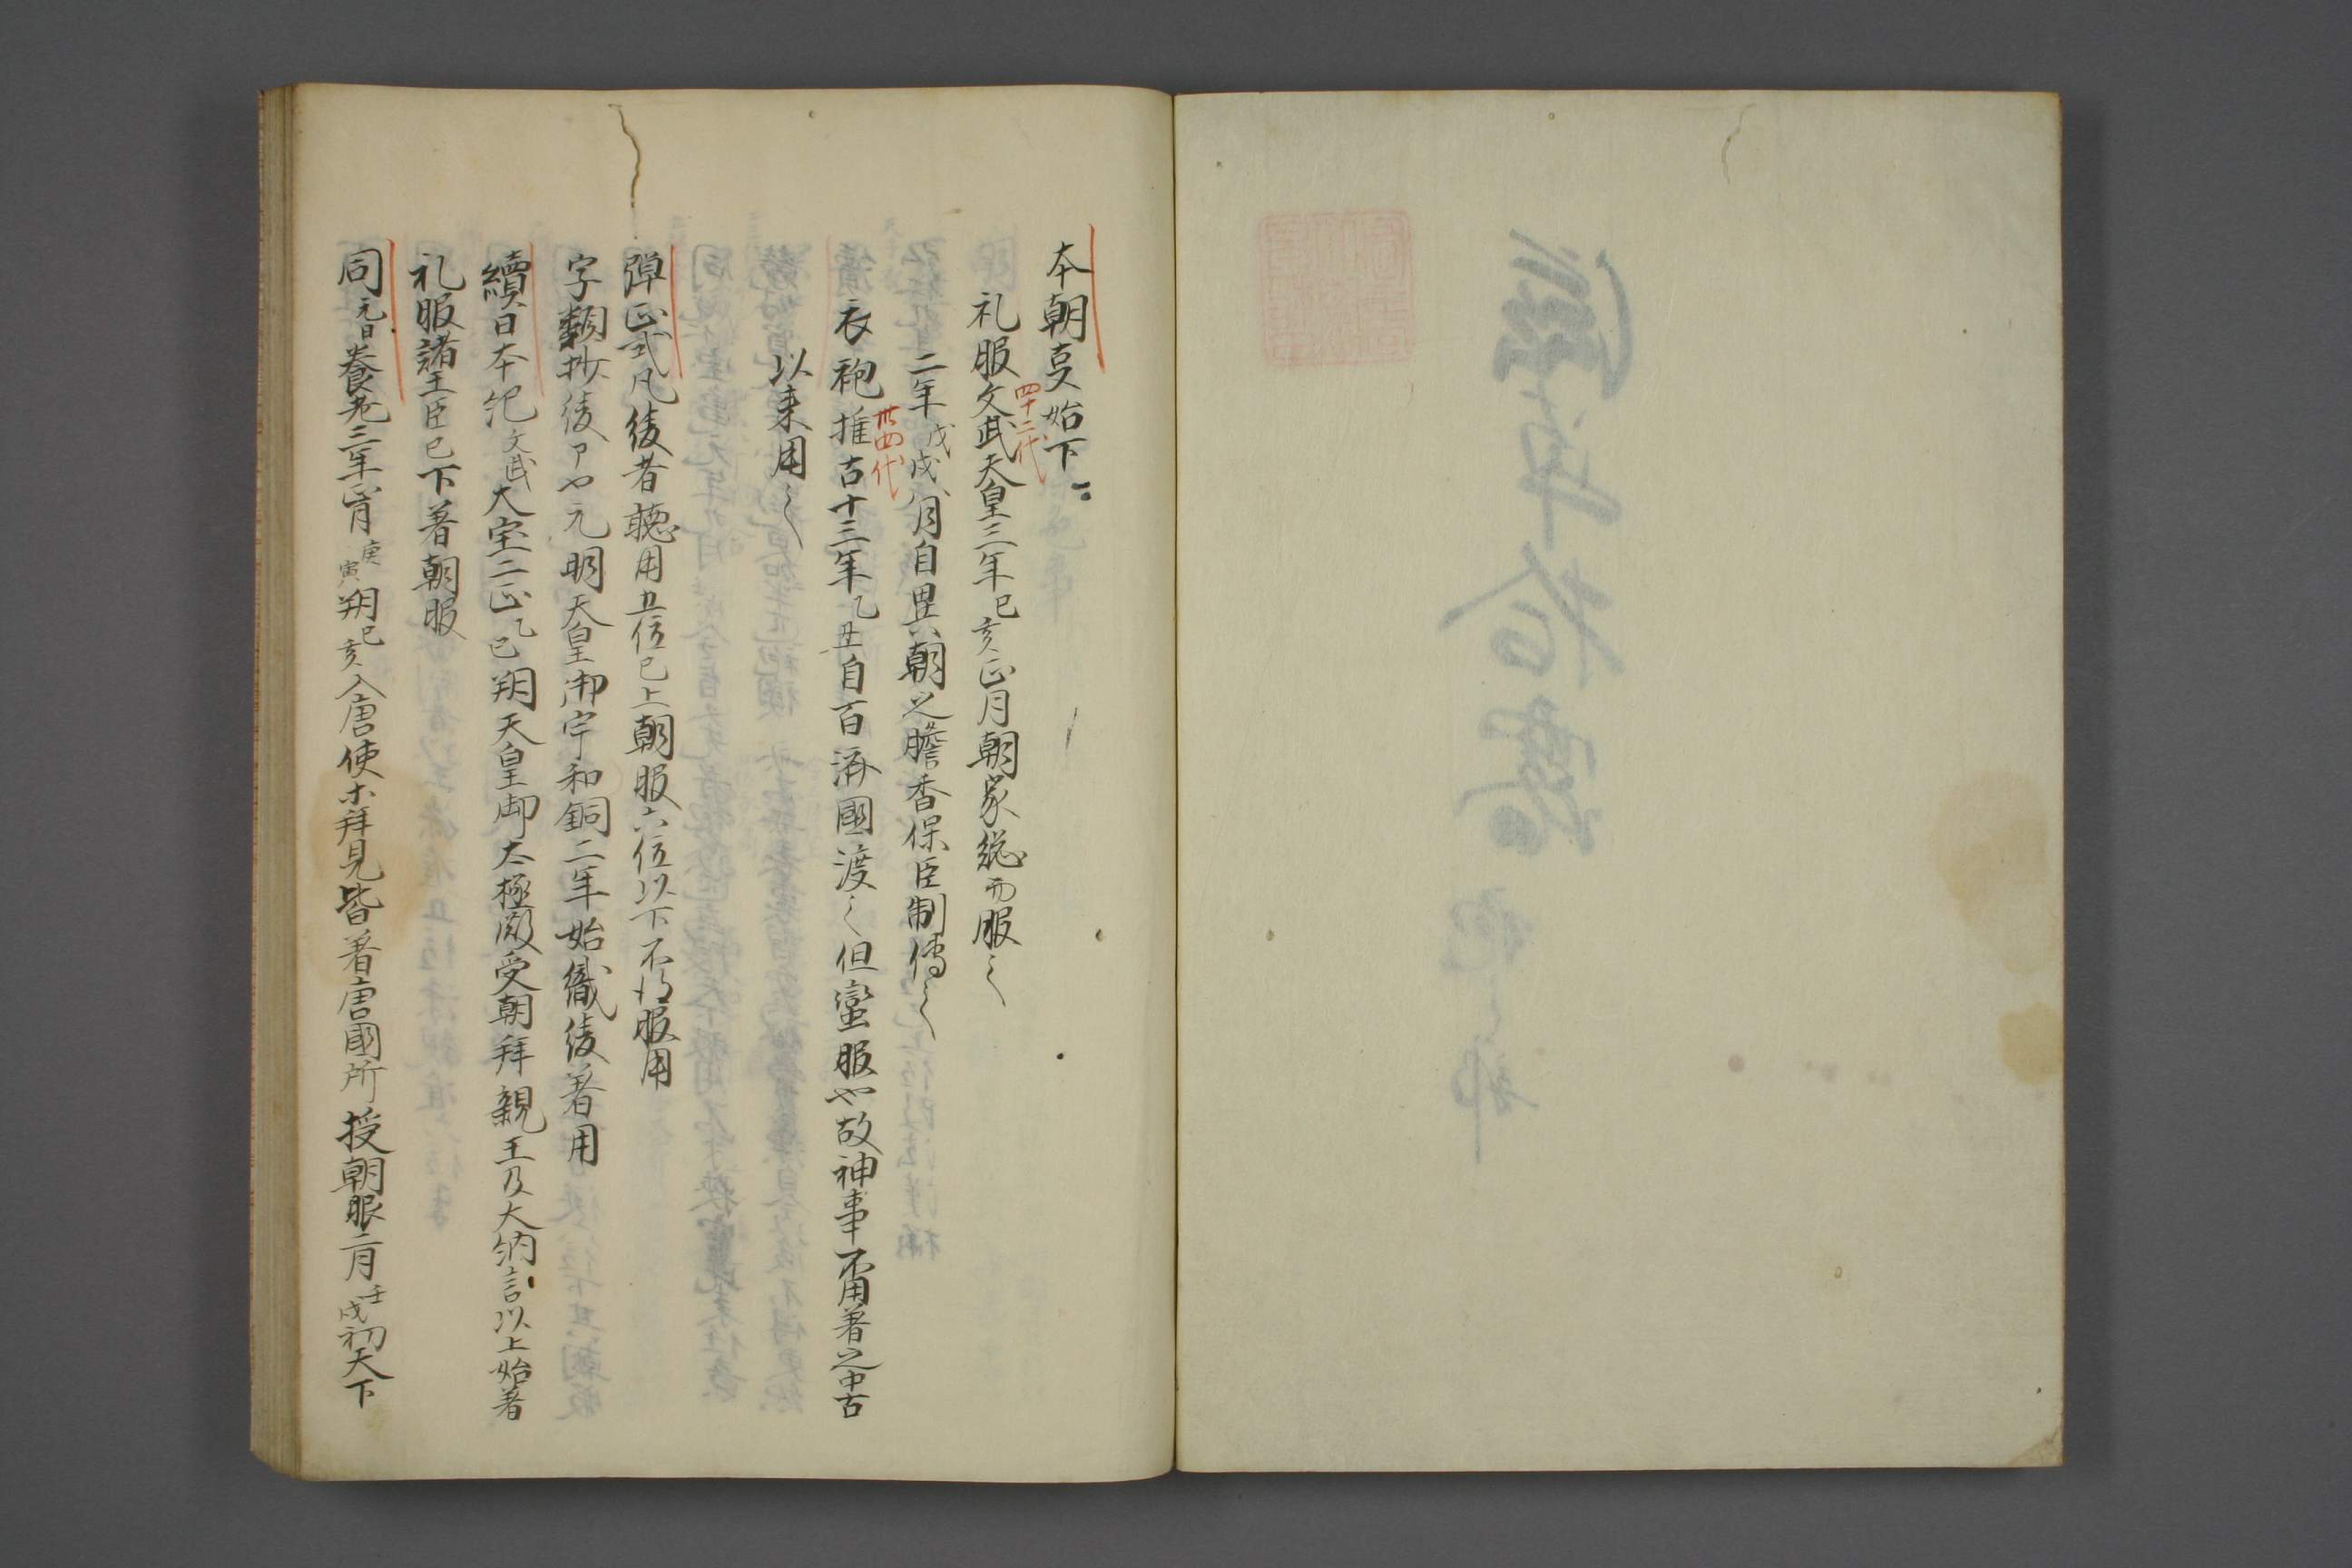 本朝事始下
礼服文武天皇三年己亥正月朝家総而服之
四十二代
二年戊戌八月自異朝之膽香保臣制傳之
衣袍推古十三年乙丑自百済國渡之但蛮服也故神事不用著之中古
卅四代
以来用之
弾正式凡綾者聴用五位已上朝服六位以下不得服用
字類抄綾アヤ元明天皇御宇和銅二年始織綾著用
續日本紀文武大宝二正乙巳朔天皇御大極殿受朝拜親王及大納言以上始著
礼服諸王臣已下著朝服
同元日養老三年正月庚寅朔己亥入唐使等拜見皆著唐國所授朝服二月壬戌初天下